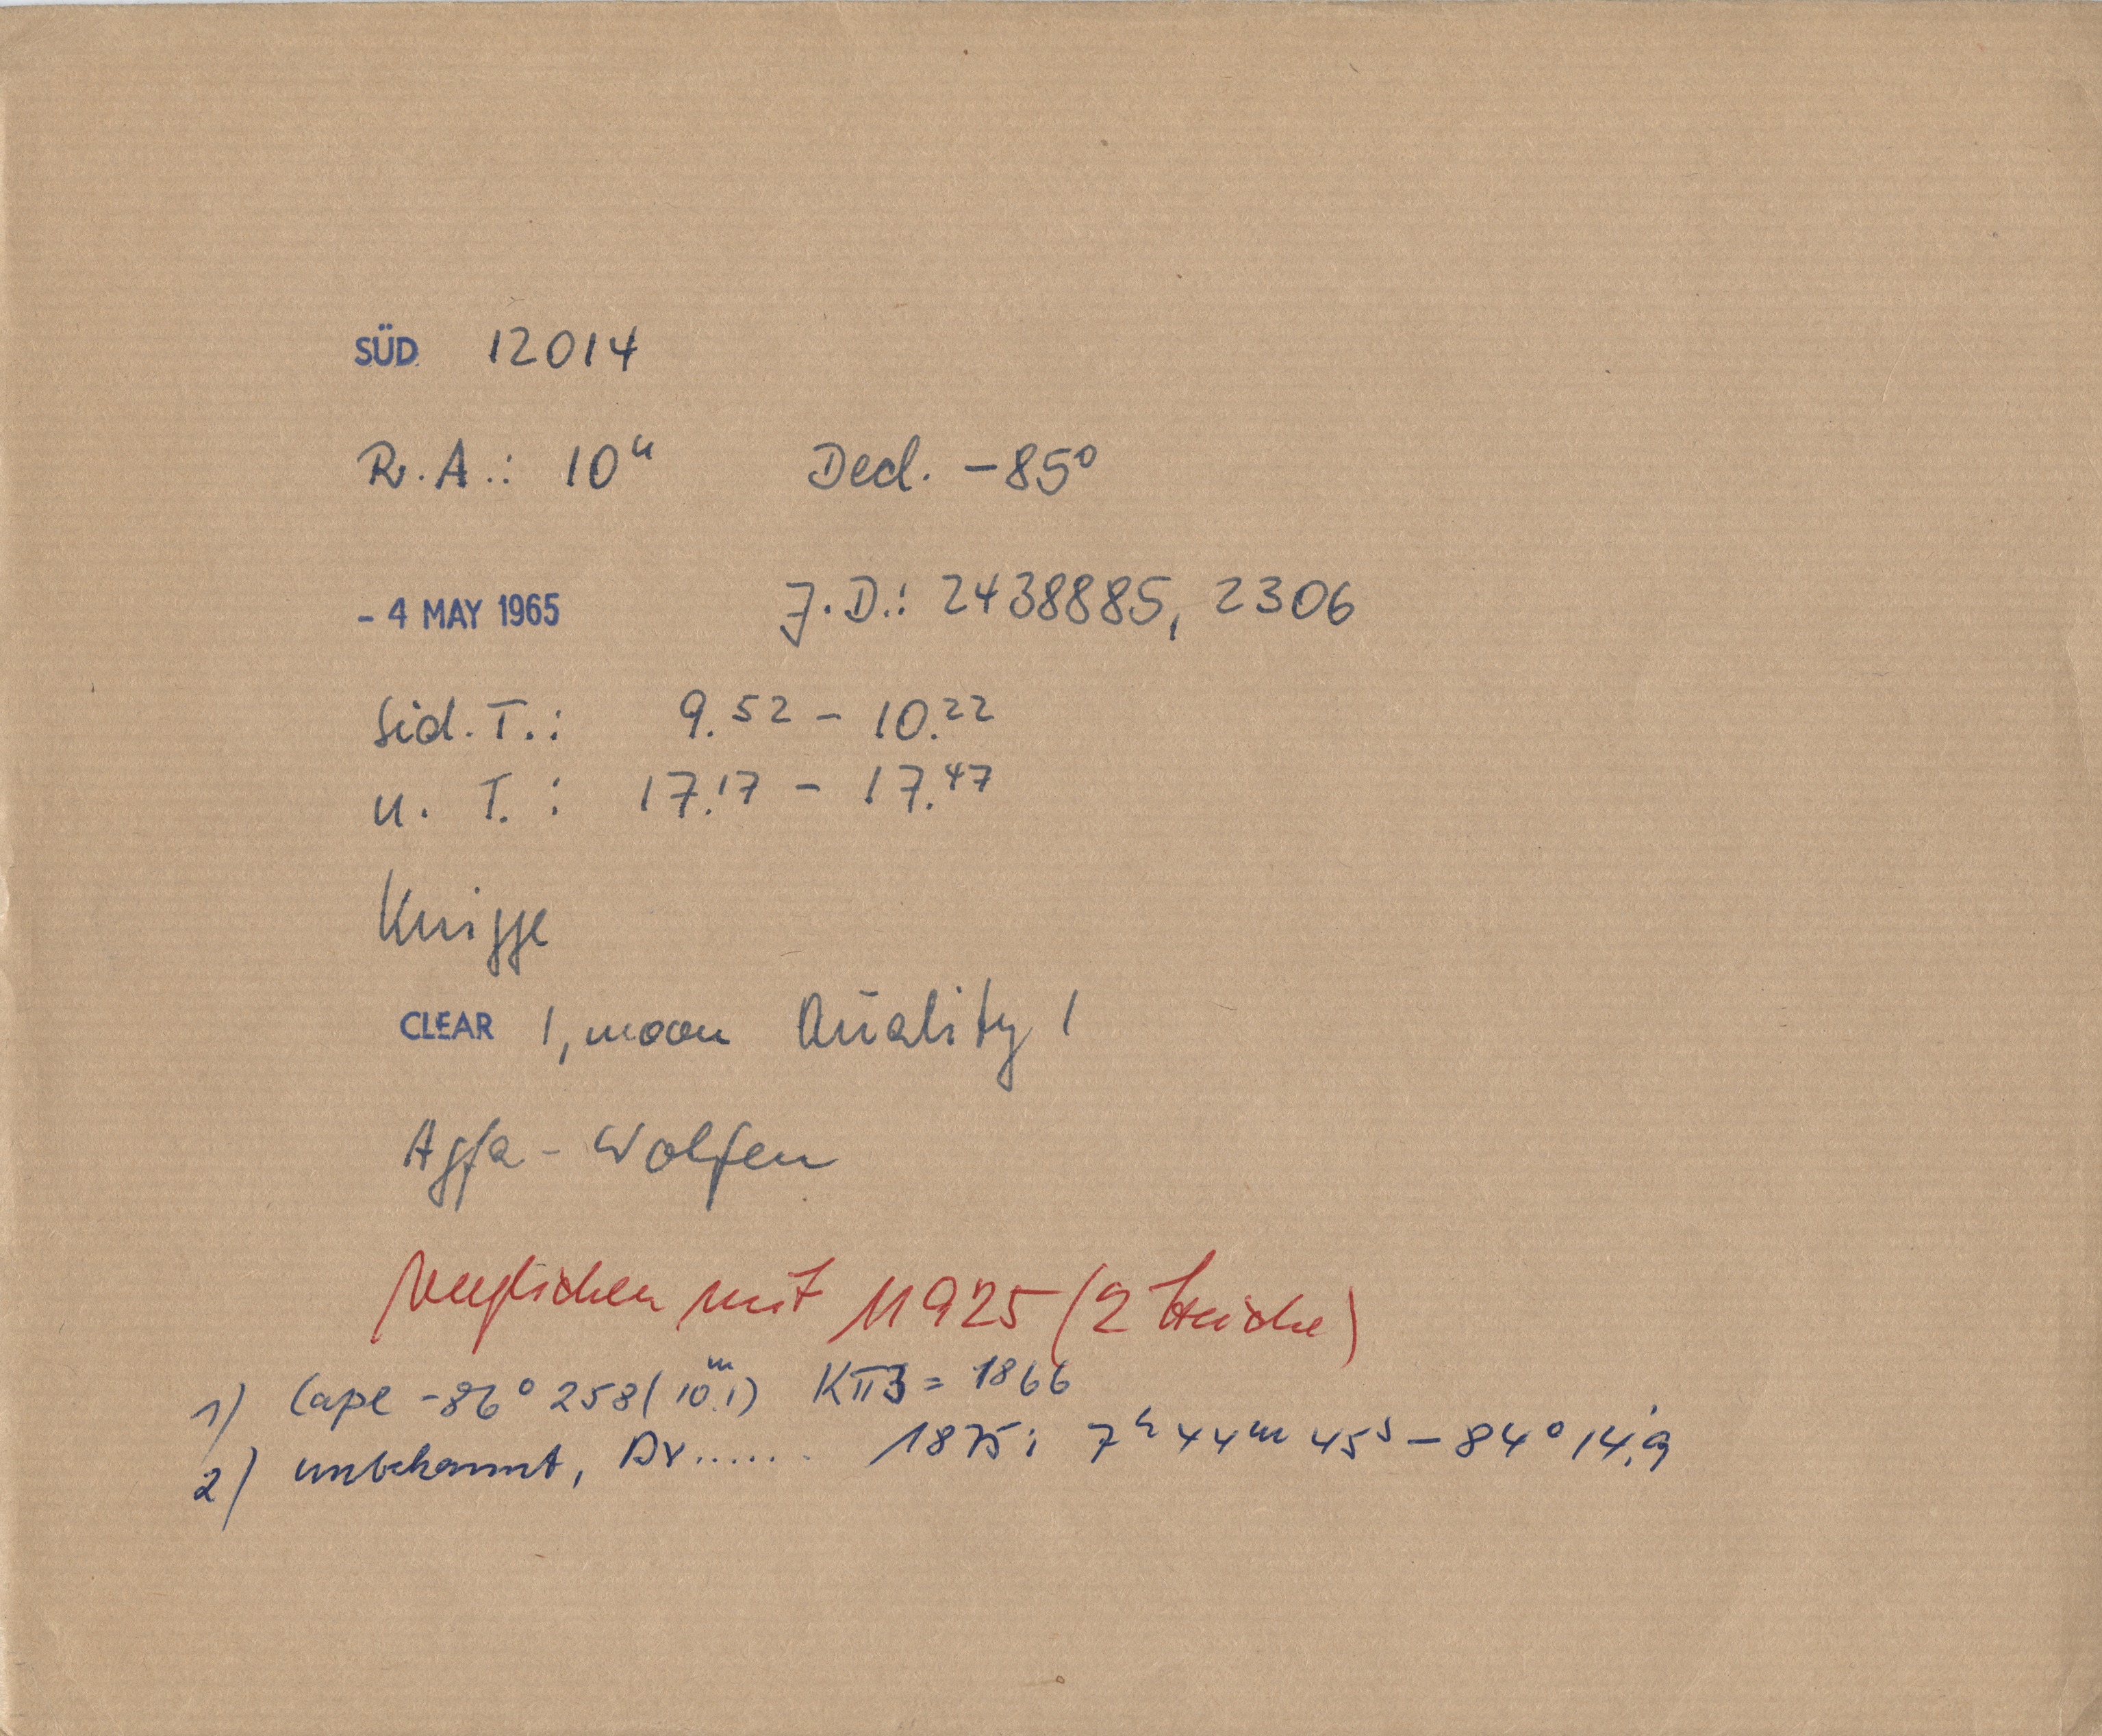 SÜD 12014
R.A.: 10ʰ Decl. -85°
- 4 MAY 1965 J.D.: 2438885, 2306
Sid. T.: 9.52 - 10.22
U. T.: 17.17 - 17.47
Knigge
CLEAR 1, moon Quality 1
Agfa - Wolfen
verglichen mit 11925 (2 Striche)
1) Cape -86° 258 (10ᵐ.1) KΠ3 = 1866
2) unbekannt, Dr...... 1875: 7ʰ 44ᵐ 45ˢ - 84° 14'.9